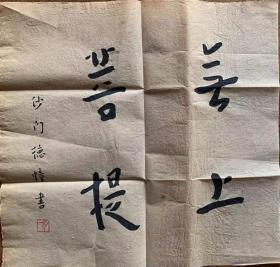 無上
菩提
沙门德悟書